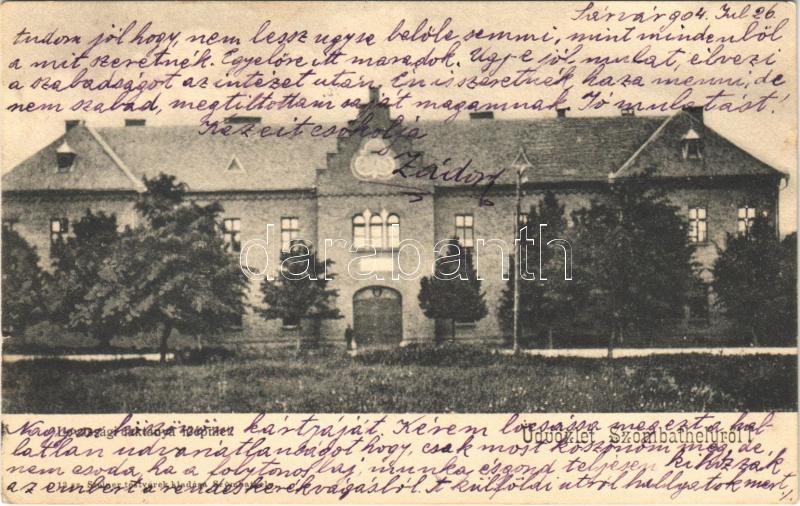 Sárvár 904. Jul 26.
tudom jól hogy, nem lessz ugyse belőle semmi, mint mindenből
a mit szeretnék. Egyelőre itt maradok. Ugy-e jól mulat, élvezi
a szabadságot az intézet után. Én is szeretnék haza menni, de
nem szabad, megtiltottam saját magamnak Jó mulatást!
Kezeit csókolja
Zádory
darabanth
Lovassági laktanya főépület.
Üdvözlet Szombathelyről!
Nagyon köszönöm kártyáját Kérem bocsássa meg ezt a hal-
latlan udvariatlanságot hogy, csak most köszönöm meg, de,
nem csoda, ha a folytonos munka esgond teljesen kihúzzák
az embert a rendes kerékvágásból. A külföldi utról hallgatok mert
12 sz. Seiler testvérek kiadása Szombathely.